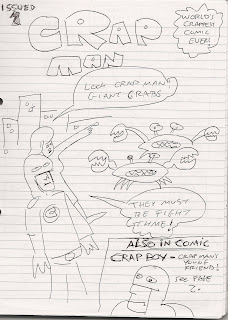 ISSUED
1
WORLD'S
CRAPPEST
COMIC
EVER!
CRAP
MAN
LOOK CRAPMAN!
GIANT CRABS
THEY MUST
BE FIGHT
THME!
ALSO IN COMIC
CRAP BOY - CRAPMAN'S
YOUNG
FRIEND!
SEE PAGE
2.